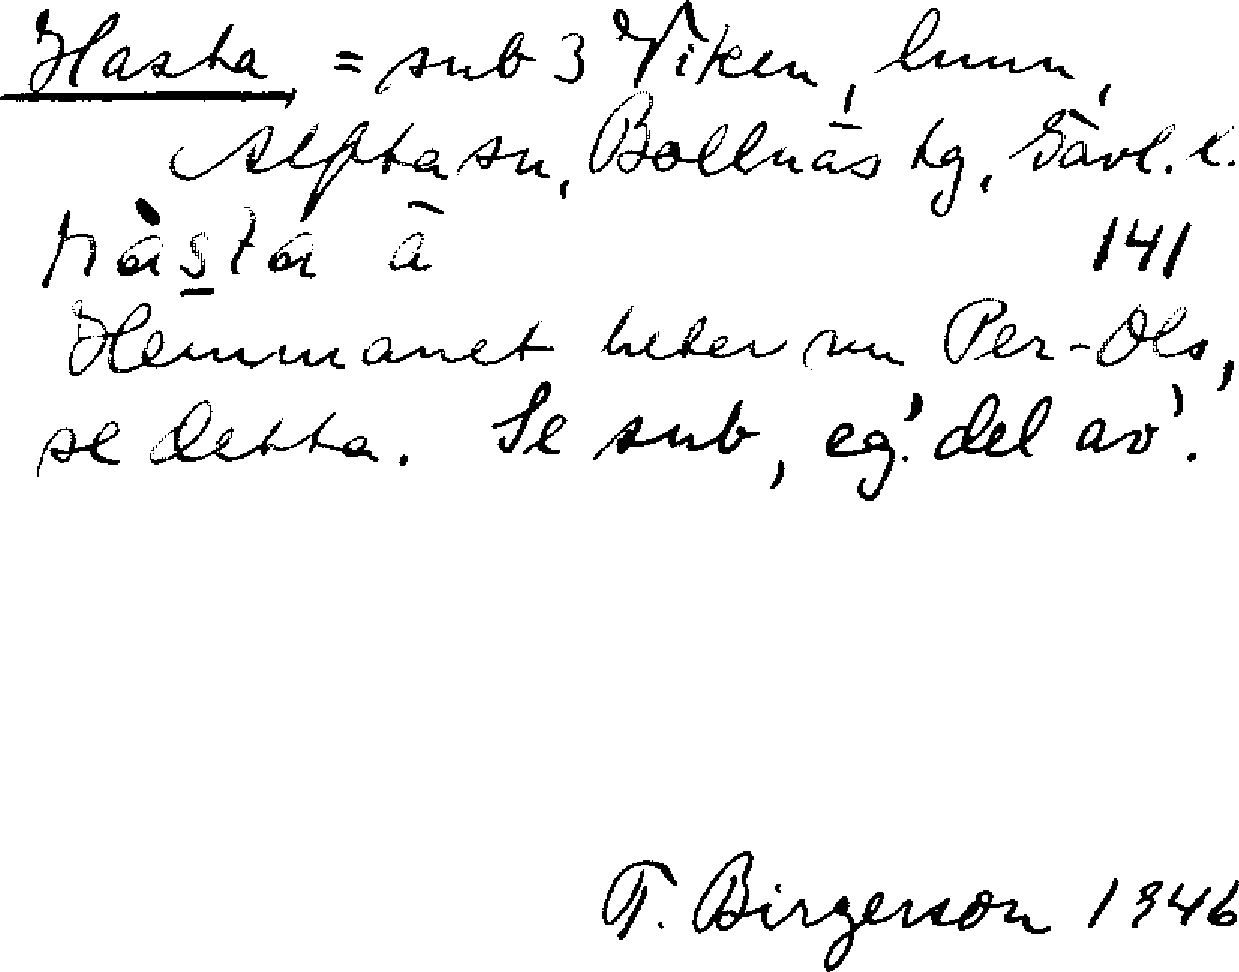 Hasta = sub 3 Viken, hmn,
Alfta sn, Bollnäs tg, Gävl. l.
hàs̱ta ā 141
Hemmanet heter nu Per-Ols,
se detta. Se sub, eg. 'del av'.
T. Birgerson 1946